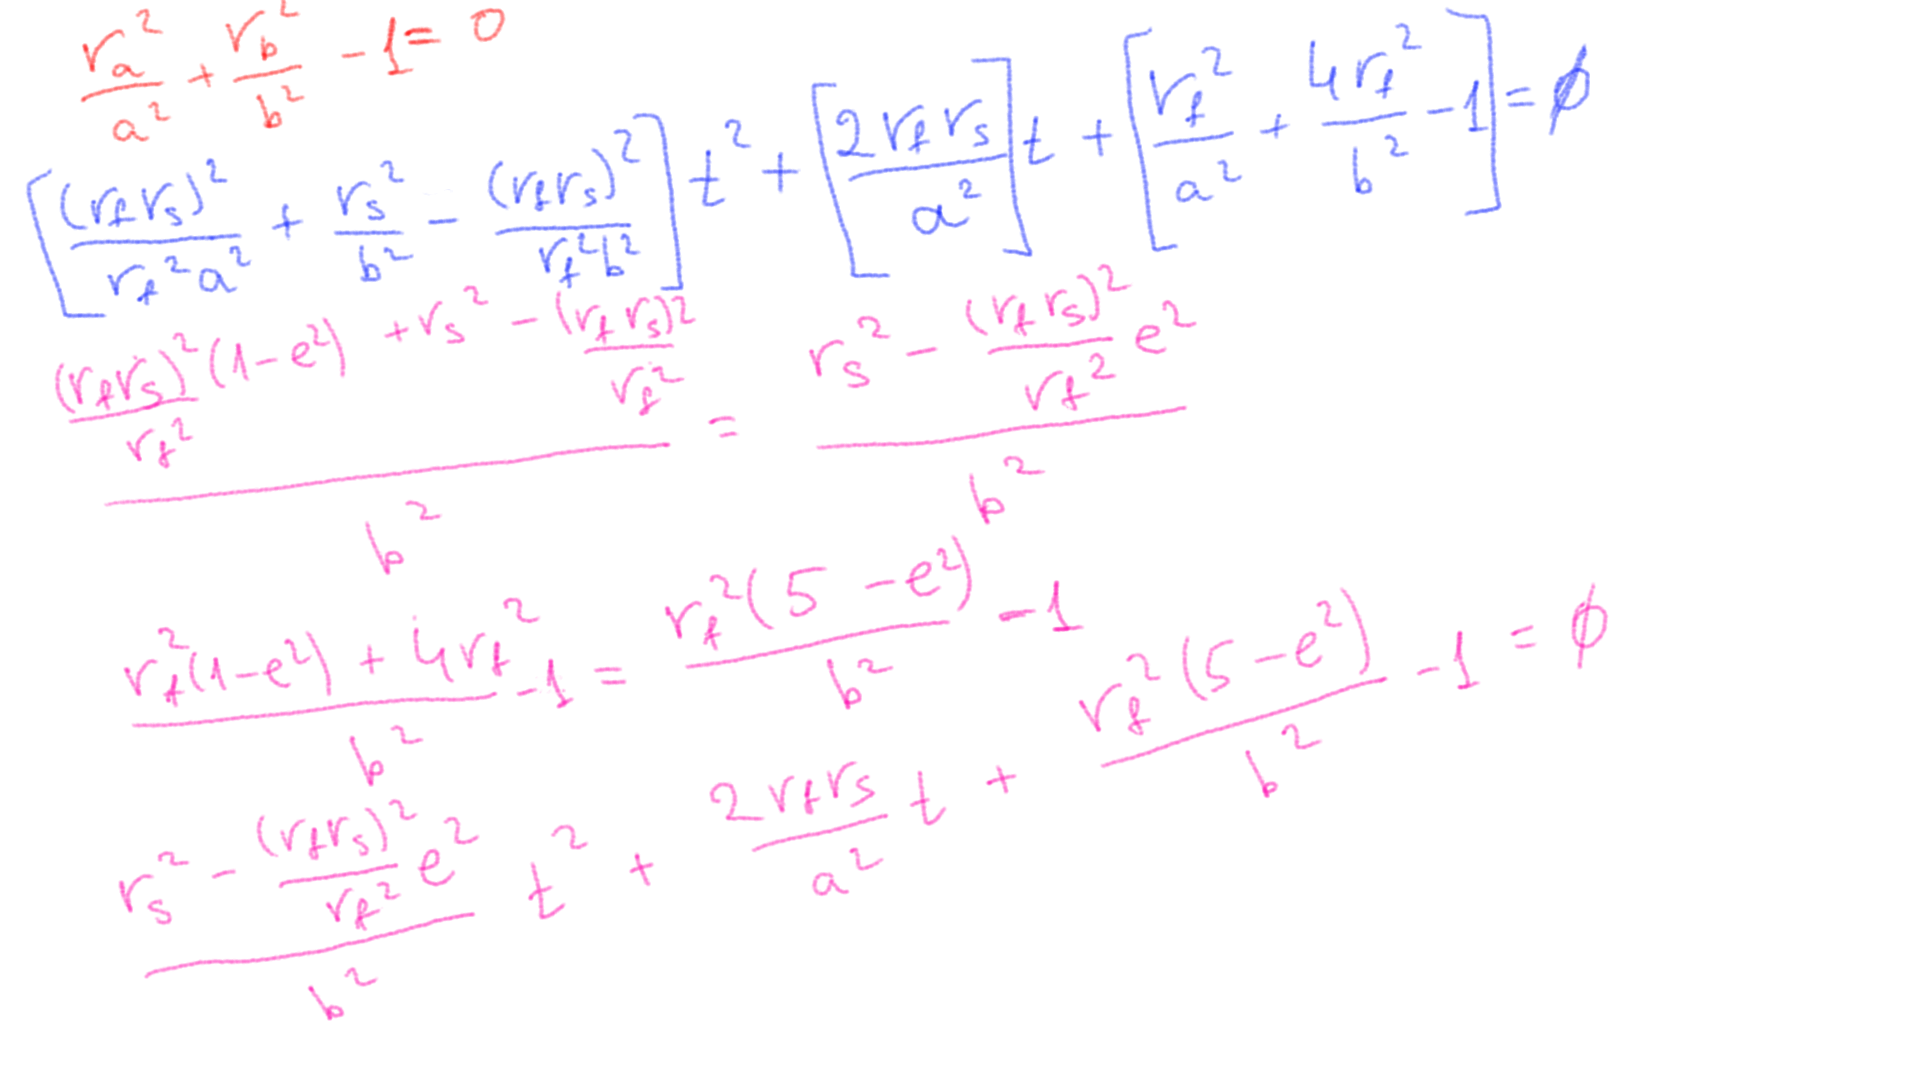 $\frac{r_a^2}{a^2} + \frac{r_b^2}{b^2} - 1 = 0$
$\left[\frac{(r_f r_s)^2}{r_f^2 a^2} + \frac{r_s^2}{b^2} - \frac{(r_f r_s)^2}{r_f^2 b^2}\right] t^2 + \left[\frac{2 r_f r_s}{a^2}\right] t + \left[\frac{r_f^2}{a^2} + \frac{4 r_f^2}{b^2} - 1\right] = \emptyset$
$\frac{\frac{(r_f r_s)^2}{r_f^2}(1-e^2) + r_s^2 - \frac{(r_f r_s)^2}{r_f^2}}{b^2} = \frac{r_s^2 - \frac{(r_f r_s)^2}{r_f^2} e^2}{b^2}$
$\frac{r_f^2(1-e^2) + 4 r_f^2}{b^2} - 1 = \frac{r_f^2(5-e^2)}{b^2} - 1$
$\frac{r_s^2 - \frac{(r_f r_s)^2}{r_f^2} e^2}{b^2} t^2 + \frac{2 r_f r_s}{a^2} t + \frac{r_f^2(5-e^2)}{b^2} - 1 = \emptyset$